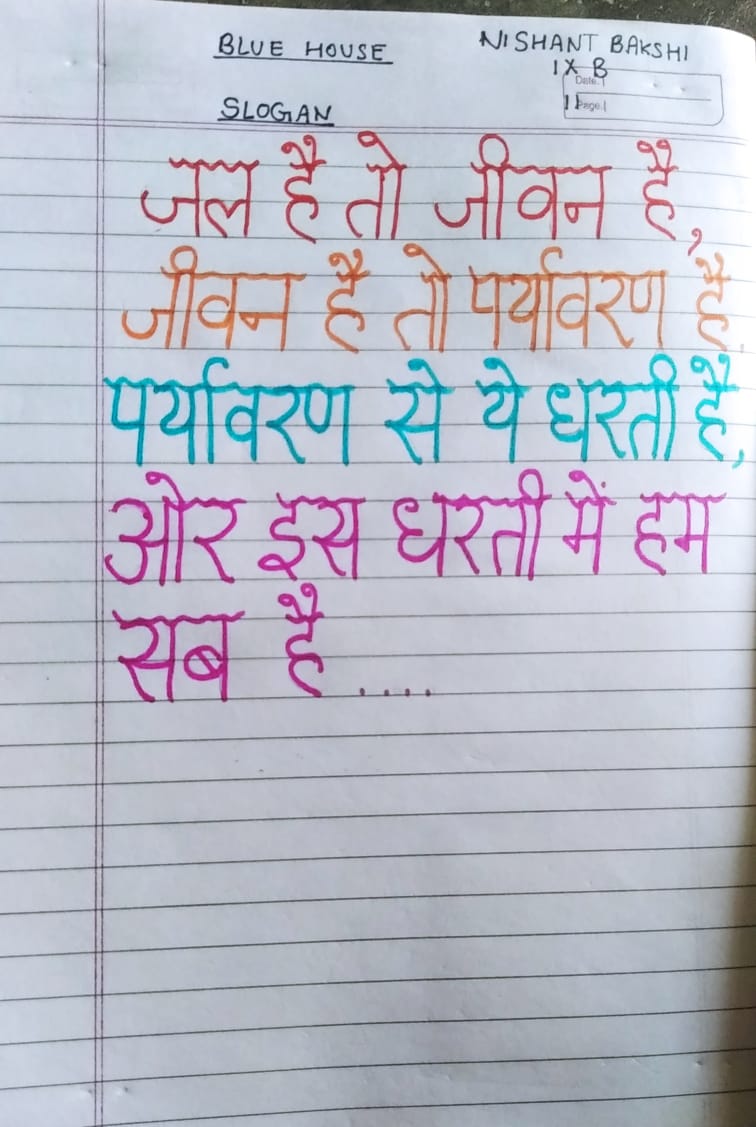 BLUE HOUSE NISHANT BAKSHI
IX B
Date.
SLOGAN
Page.
जल है तो जीवन है,
जीवन है तो पर्यावरण है.
पर्यावरण से ये धरती है,
ओर इस धरती में हम
सब है ....